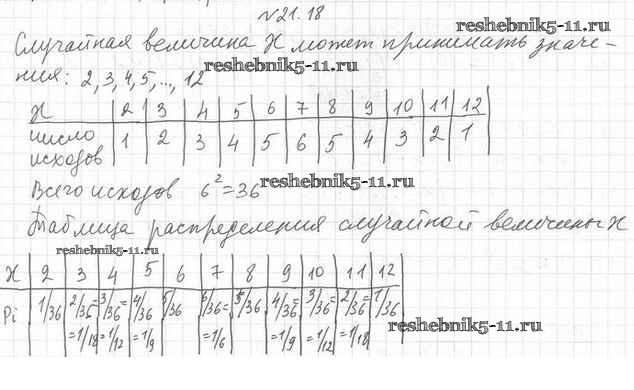 №21.18
reshebnik5-11.ru
Случайная величина X может принимать значе-
ния: 2,3,4,5,...,12
reshebnik5-11.ru
X 2 3 4 5 6 7 8 9 10 11 12
число исходов 1 2 3 4 5 6 5 4 3 2 1
Всего исходов 6²=36
reshebnik5-11.ru
Таблица распределения случайной величины X
reshebnik5-11.ru
X 2 3 4 5 6 7 8 9 10 11 12
Pi 1/36 2/36= 3/36= 4/36 5/36 6/36= 5/36 4/36= 3/36= 2/36= 1/36
=1/18 =1/12 =1/9 =1/6 =1/9 =1/12 =1/18
reshebnik5-11.ru